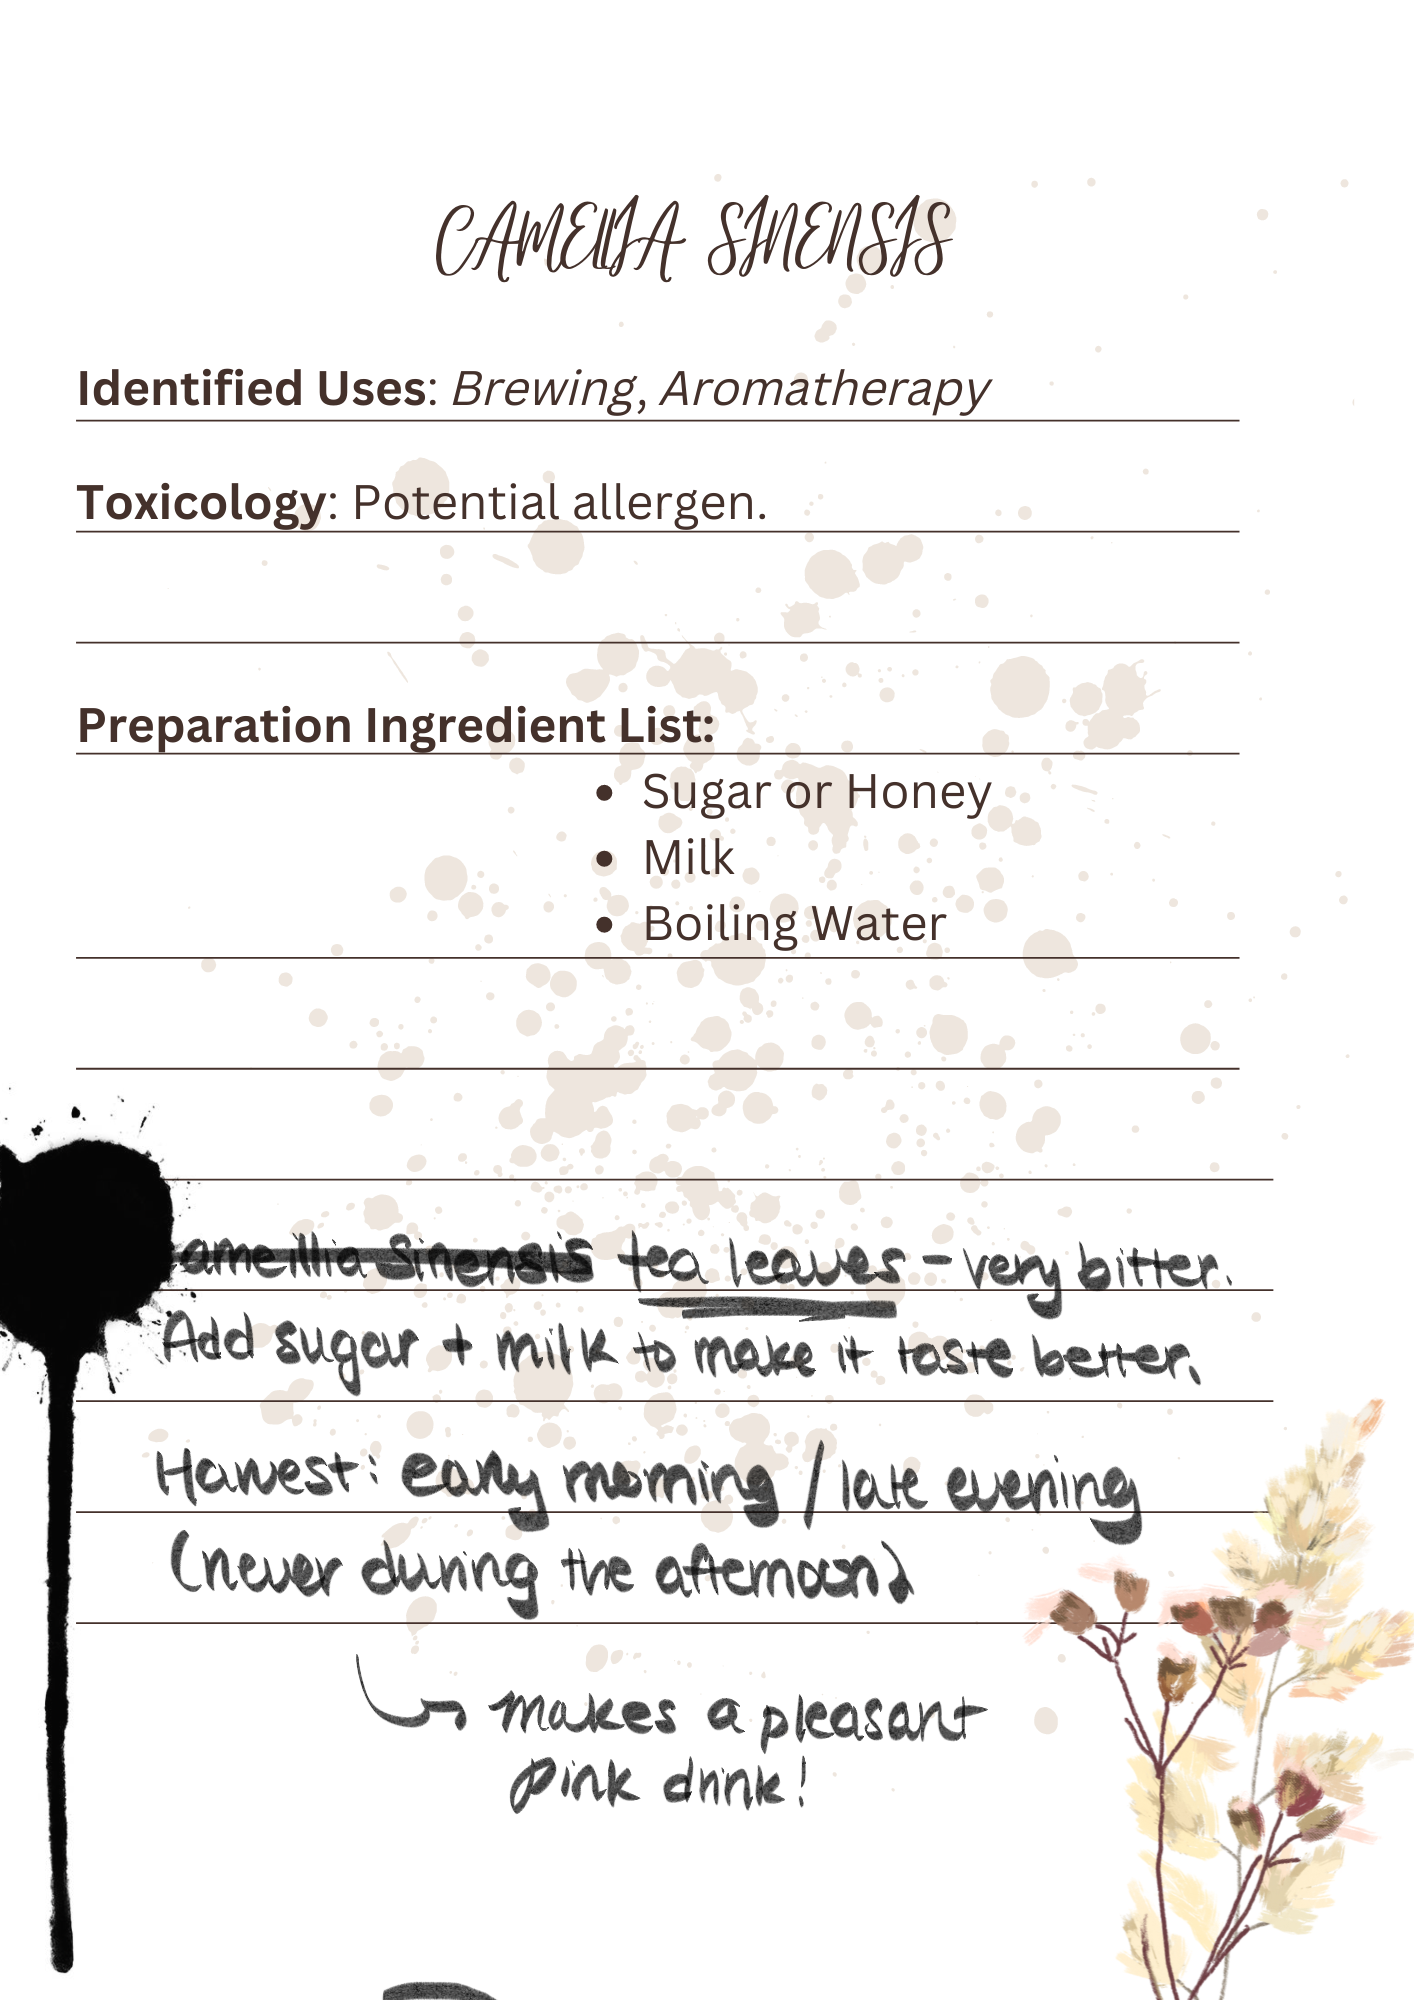 CAMELLIA SINENSIS
Identified Uses: Brewing, Aromatherapy
Toxicology: Potential allergen.
Preparation Ingredient List:
• Sugar or Honey
• Milk
• Boiling Water
amelllia Sinensis tea leaves - very bitter.
Add sugar + milk to make it taste better.
Harvest: early morning / late evening
(never during the afternoon)
makes a pleasant
pink drink!